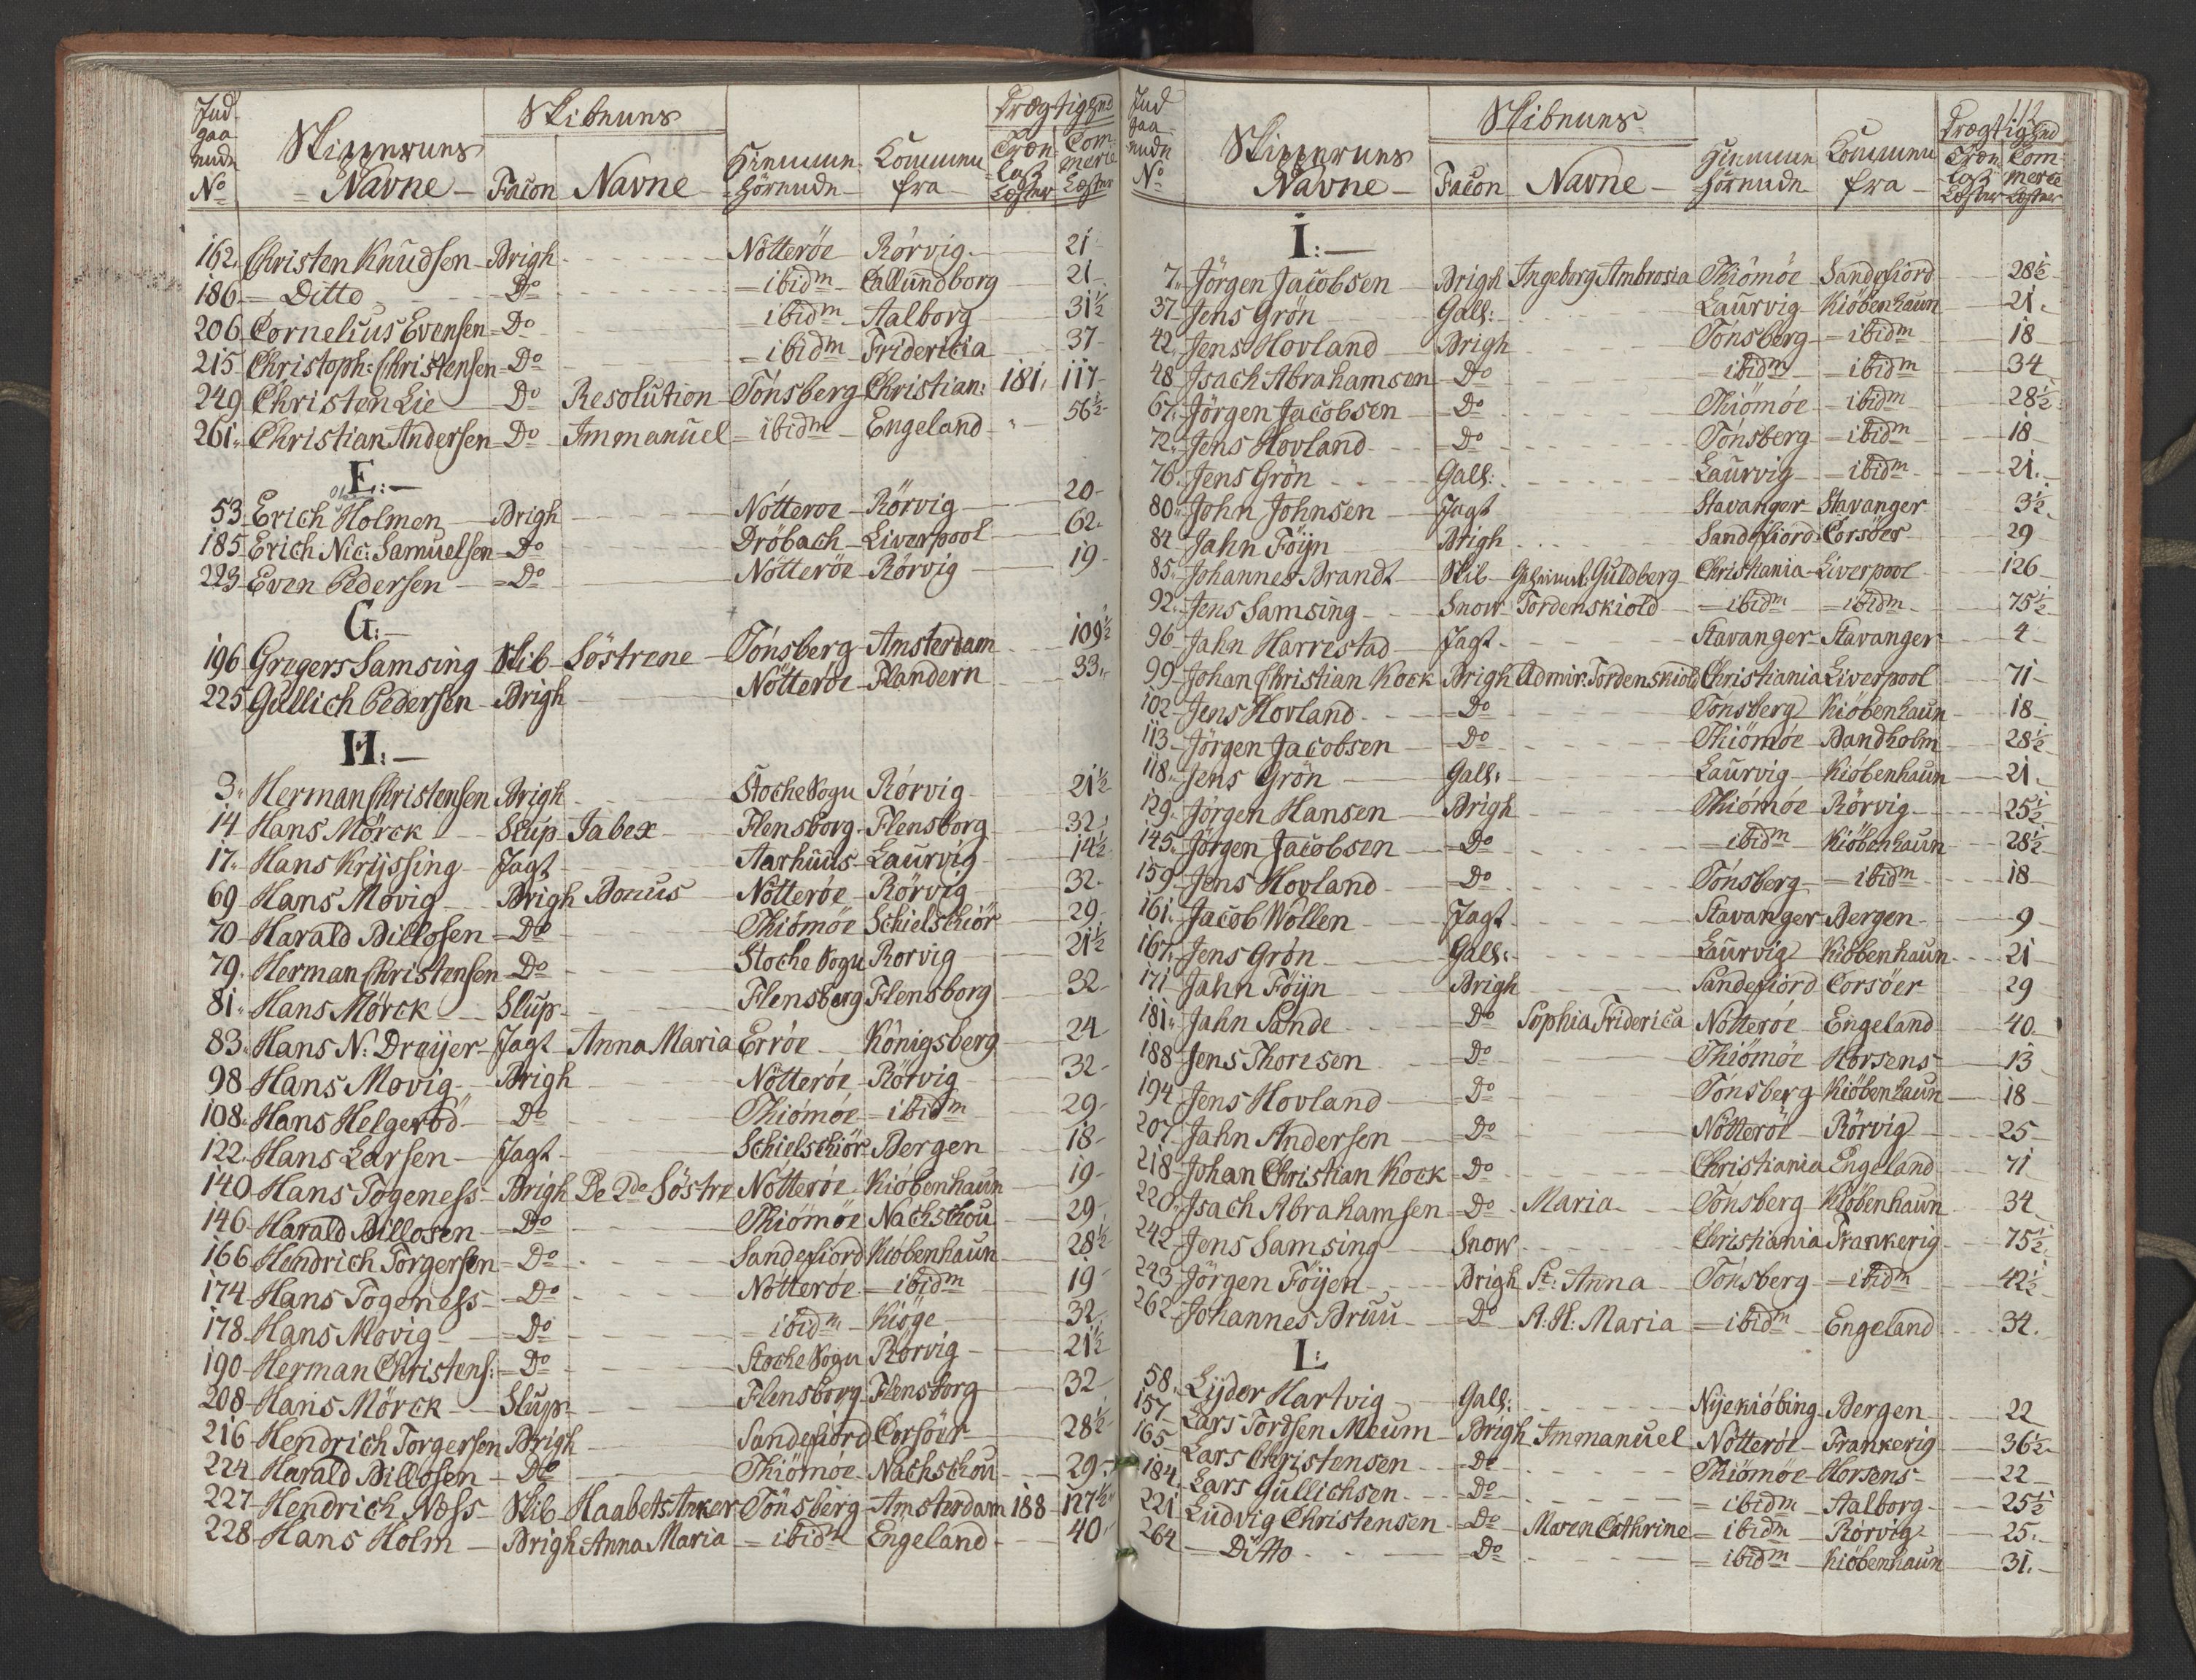 Ind gaa ende No Skipperens Navne Skibenes Facon Navne Hiemme Hörende Kommen fra Drægtighed Træn Last Læster Com merce Læster
162. Christen Knudsen Brigh Nötteröe Rörvig 21
186 Ditto Do ibidm Callundborg 21
206 Cornelius Evensen Do ibidm Aalborg 31½
215 Christoph: Christensen Do ibidm Fridericia 37
249 Christen Lie Do Resolution Tönsberg Christian: 181. 117
261. Christian Andersen Do Immanuel ibidm Engeland " 56½
E:
53 Erich Holmen Brigh Nötteröe Rörvig 20
185 Erich Nic: Samuelsen Do Dröbach Liverpool 62
223 Even Pedersen Do Nötteröe Rörvig 19
G:
196 Gregers Samsing Skib Söstrene Tönsberg Amsterdam 109½
225 Gullich Pedersen Brigh Nötteröe Flandern 33
H:
3. Herman Christensen Brigh Stoche Sogn Rörvig 21½
14 Hans Mörck Slup Jabex Flensborg Flensborg 32
17. Hans Krijssing Jagt Aarhuus Laurvig 14½
69 Hans Movig Brigh Bonus Nötteröe Rörvig 32
70 Harald Billosen Do Thiömöe Schielschiör 29
79. Herman Christensen Do Stoche Sogn Rorvig 21½
81. Hans Mörck Slup Flensberg Flensborg 32
83. Hans N: Dreijer Jagt Anna Maria Erröe Königsberg 24
98 Hans Movig Brigh Nötteröe Rörvig 32
108. Hans Helgeröd Do Thiömöe ibidm 29
122. Hans Larsen Jagt Schielschiör Bergen 18
140 Hans Togeness Brigh De 2de Söstre Nötteröe Kiöbenhaun 19
146 Harald Billosen Do Thiömöe Nachschou 29
166 Hendrich Torgersen Do Sandefiord Kiöbenhaun 28½
174 Hans Togeness Do Nötteröe ibidm 19
178. Hans Movig Do ibidm Kiöge 32
190 Herman Christens: Do Stoche Sogn Rörvig 21½
208 Hans Mörck Slup Flensborg Flensborg 32
216 Hendrich Torgersen Brigh Sandefiord Corsöer 28½
224 Harald Billosen Do Thiömöe Nachschou 29
227 Hendrich Ness Skib Haabets Anker Tönsberg Amsterdam 188 127½
228 Hans Holm Brigh Anna Maria ibidm Engeland 40
112
Ind gaa ende No Skipperens Navne Skibenes Facon Navne Hiemme Hörende Kommen fra Drægtighed Træn Last Læster Com merce Læster
I:
7. Jörgen Jacobsen Brigh Ingeborg Ambrosia Thiömöe Sandefiord 28½
37 Jens Grön Gall: Laurvig Kiöbenhaun 21.
42. Jens Hovland Brigh Tönsberg ibidm 18
48 Isach Abrahamsen Do ibidm ibidm 34
67. Jörgen Jacobsen Do Thiömöe ibidm 28½
72. Jens Hovland Do Tönsberg ibidm 18
76. Jens Grön Gall: Laurvig ibidm 21.
80. John Johnsen Jagt Stavanger Stavanger 3½
84 Jahn Föijn Brigh Sandefiord Corsöer 29
85. Johannes Brandt Skib Geheimrd: Guldberg Christiania Liverpool 126
92. Jens Samsing Snow Tordenskiold ibidm ibidm 75½
96 Jahn Harrestad Jagt Stavanger Stavanger 4
99 Johan Christian Kock Brigh Admir: Tordenskiold Christiania Liverpool 71
102 Jens Hovland Do Tönsberg Kiöbenhaun 18
113 Jörgen Jacobsen Do Thiömöe Bandholm 28½
118. Jens Grön Gall: Laurvig Kiöbenhaun 21.
129. Jörgen Hansen Brigh Thiömöe Rörvig 25½
145. Jörgen Jacobsen Do ibidm Kiöbenhaun 28½
159 Jens Hovland Do Tönsberg ibidm 18
161. Jacob Wöllen Jagt Stavanger Bergen 9
167. Jens Grön Gall: Laurvig Kiöbenhaun 21
171 Jahn Föijn Brigh Sandefiord Corsöer 29
181. Jahn Sande Do Sophia Friderica Nötteröe Engeland 40
188 Jens Thoresen Do Thiömöe Horsens 13
194 Jens Hovland Do Tönsberg Kiöbenhaun 18
207. Jahn Andersen Do Nötteröe Rörvig 25
218 Johan Christian Kock Do Christiania Engeland 71
220. Isach Abrahamsen Do Maria Tönsberg Kiöbenhaun 34
242 Jens Samsing Snow Christiania Frankerig 75½
243 Jörgen Föijen Brigh St: Anna Tönsberg ibidm 42½
262 Johannes Bruu Do A. H: Maria ibidm Engeland 34.
L:
58. Lijder Hartvig Gall: Nijekiöbing Bergen 22
157 Lars Tordsen Meum Brigh Immanuel Nötteröe Frankerig 36½
165 Lars Christensen Do Thiömöe Horsens 22
184. Lars Gullichsen Do ibidm Aalborg 25½
221 Ludvig Christensen Do Maren Cathrine ibidm Rörvig 25.
264 Ditto Do ibidm Kiöbenhaun 31.